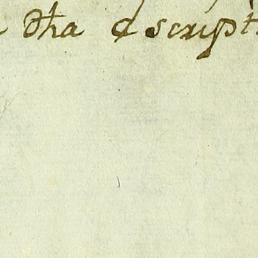 dha q̃ script